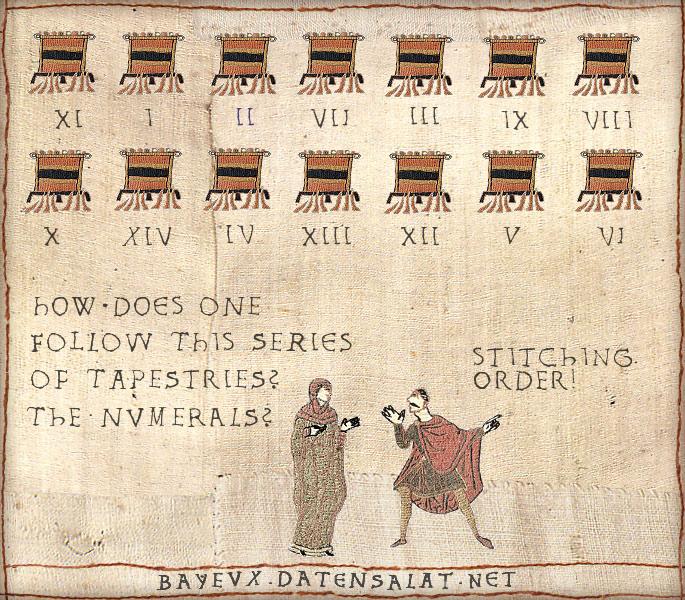 XI I II VII III IX VIII
X XIV IV XIII XII V VI
hOW·DOES ONE
FOLLOW ThIS SERIES
OF TAPESTRIES?
ThE·NVMERALS?
STITChING·
ORDER!
BAYEVX·DATENSALAT·NET